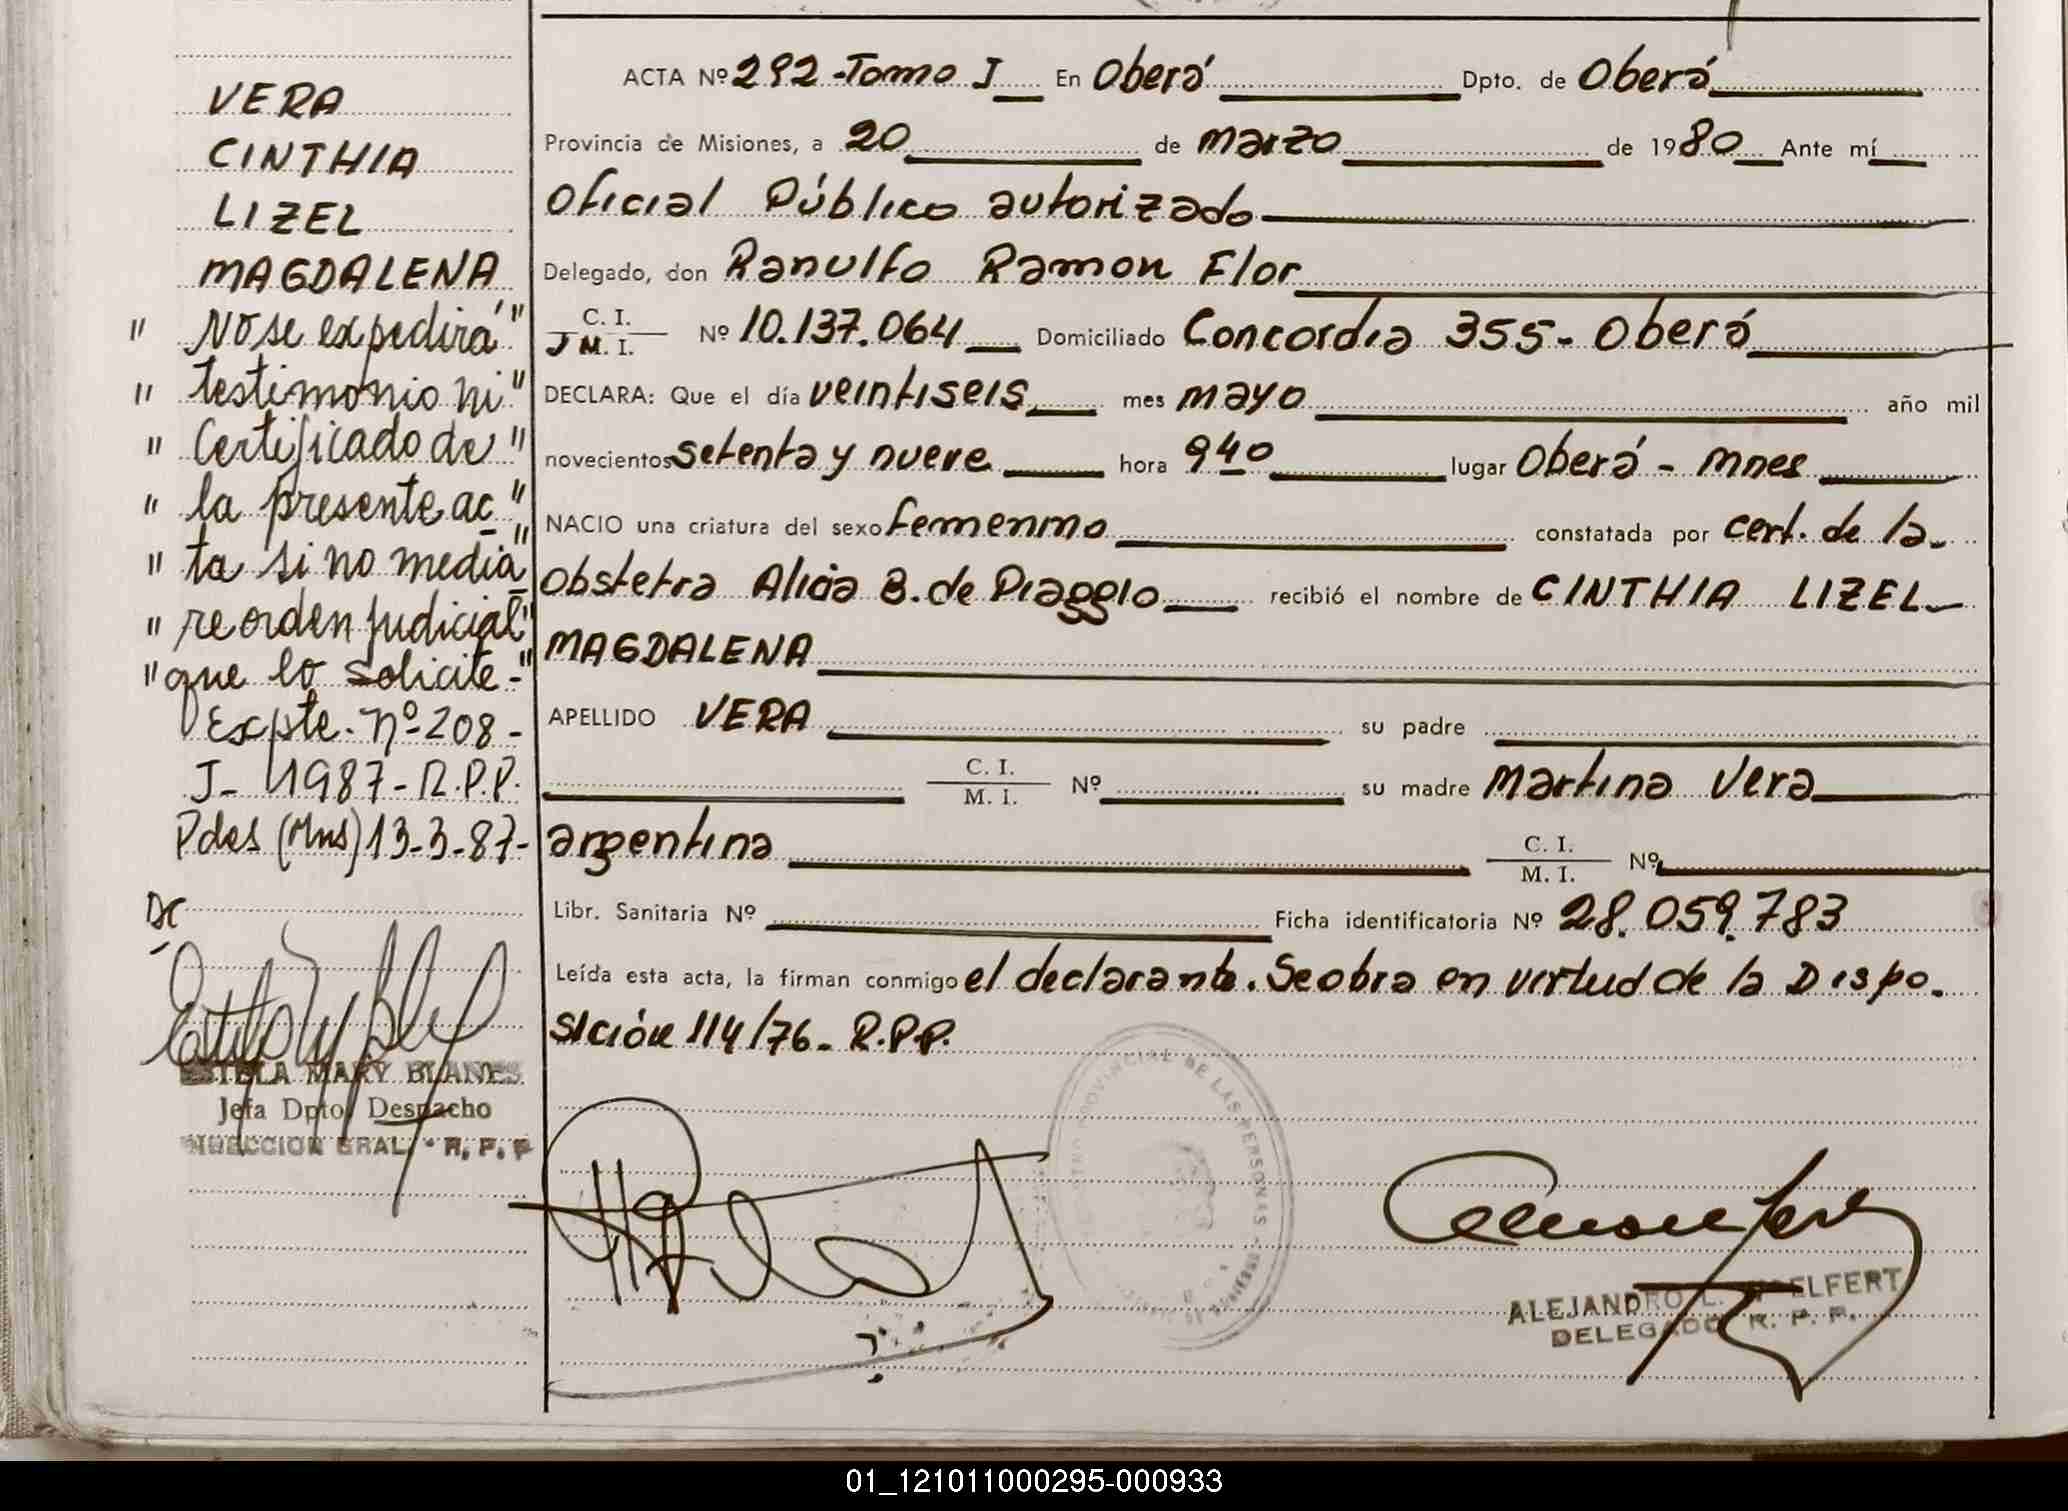 VERA
CINTHIA
LIZEL
MAGDALENA
" No se expedirá "
" testimonio ni "
" Certificado de "
" la presente ac "
" ta si no media "
" re orden judicial "
" que lo solicite - "
Expte. Nº 208 -
J - 1987 - R.P.P.
Pdas (Mns) 13-3-87 -
ESTELA MARY BLANES
Jefa Dpto. Despacho
DIRECCION GRAL. - R. P. P.
ACTA Nº 292 - Tomo I En Oberá Dpto. de Oberá
Provincia de Misiones, a 20 de marzo de 1980 Ante mí
Oficial Público autorizado
Delegado, don Ranulfo Ramon Flor
C. I. / M. I. Nº 10.137.064 Domiciliado Concordia 355 - Oberá
DECLARA: Que el día veintiseis mes mayo año mil
novecientos setenta y nueve hora 9 40 lugar Oberá - Mnes
NACIO una criatura del sexo femenino constatada por cert. de la
Obstetra Alicia B. de Piaggio recibió el nombre de CINTHIA LIZEL
MAGDALENA
APELLIDO VERA su padre
C. I. / M. I. Nº su madre Martina Vera
argentina C. I. / M. I. Nº
Libr. Sanitaria Nº Ficha identificatoria Nº 28.059.783
Leída esta acta, la firman conmigo el declarante. Se obra en virtud de la Dispo-
sición 114/76 - R.P.P.
PROVINCIAL DE LAS PERSONAS
ALEJANDRO L.
DELEGADO R. P. P.
01_121011000295-000933